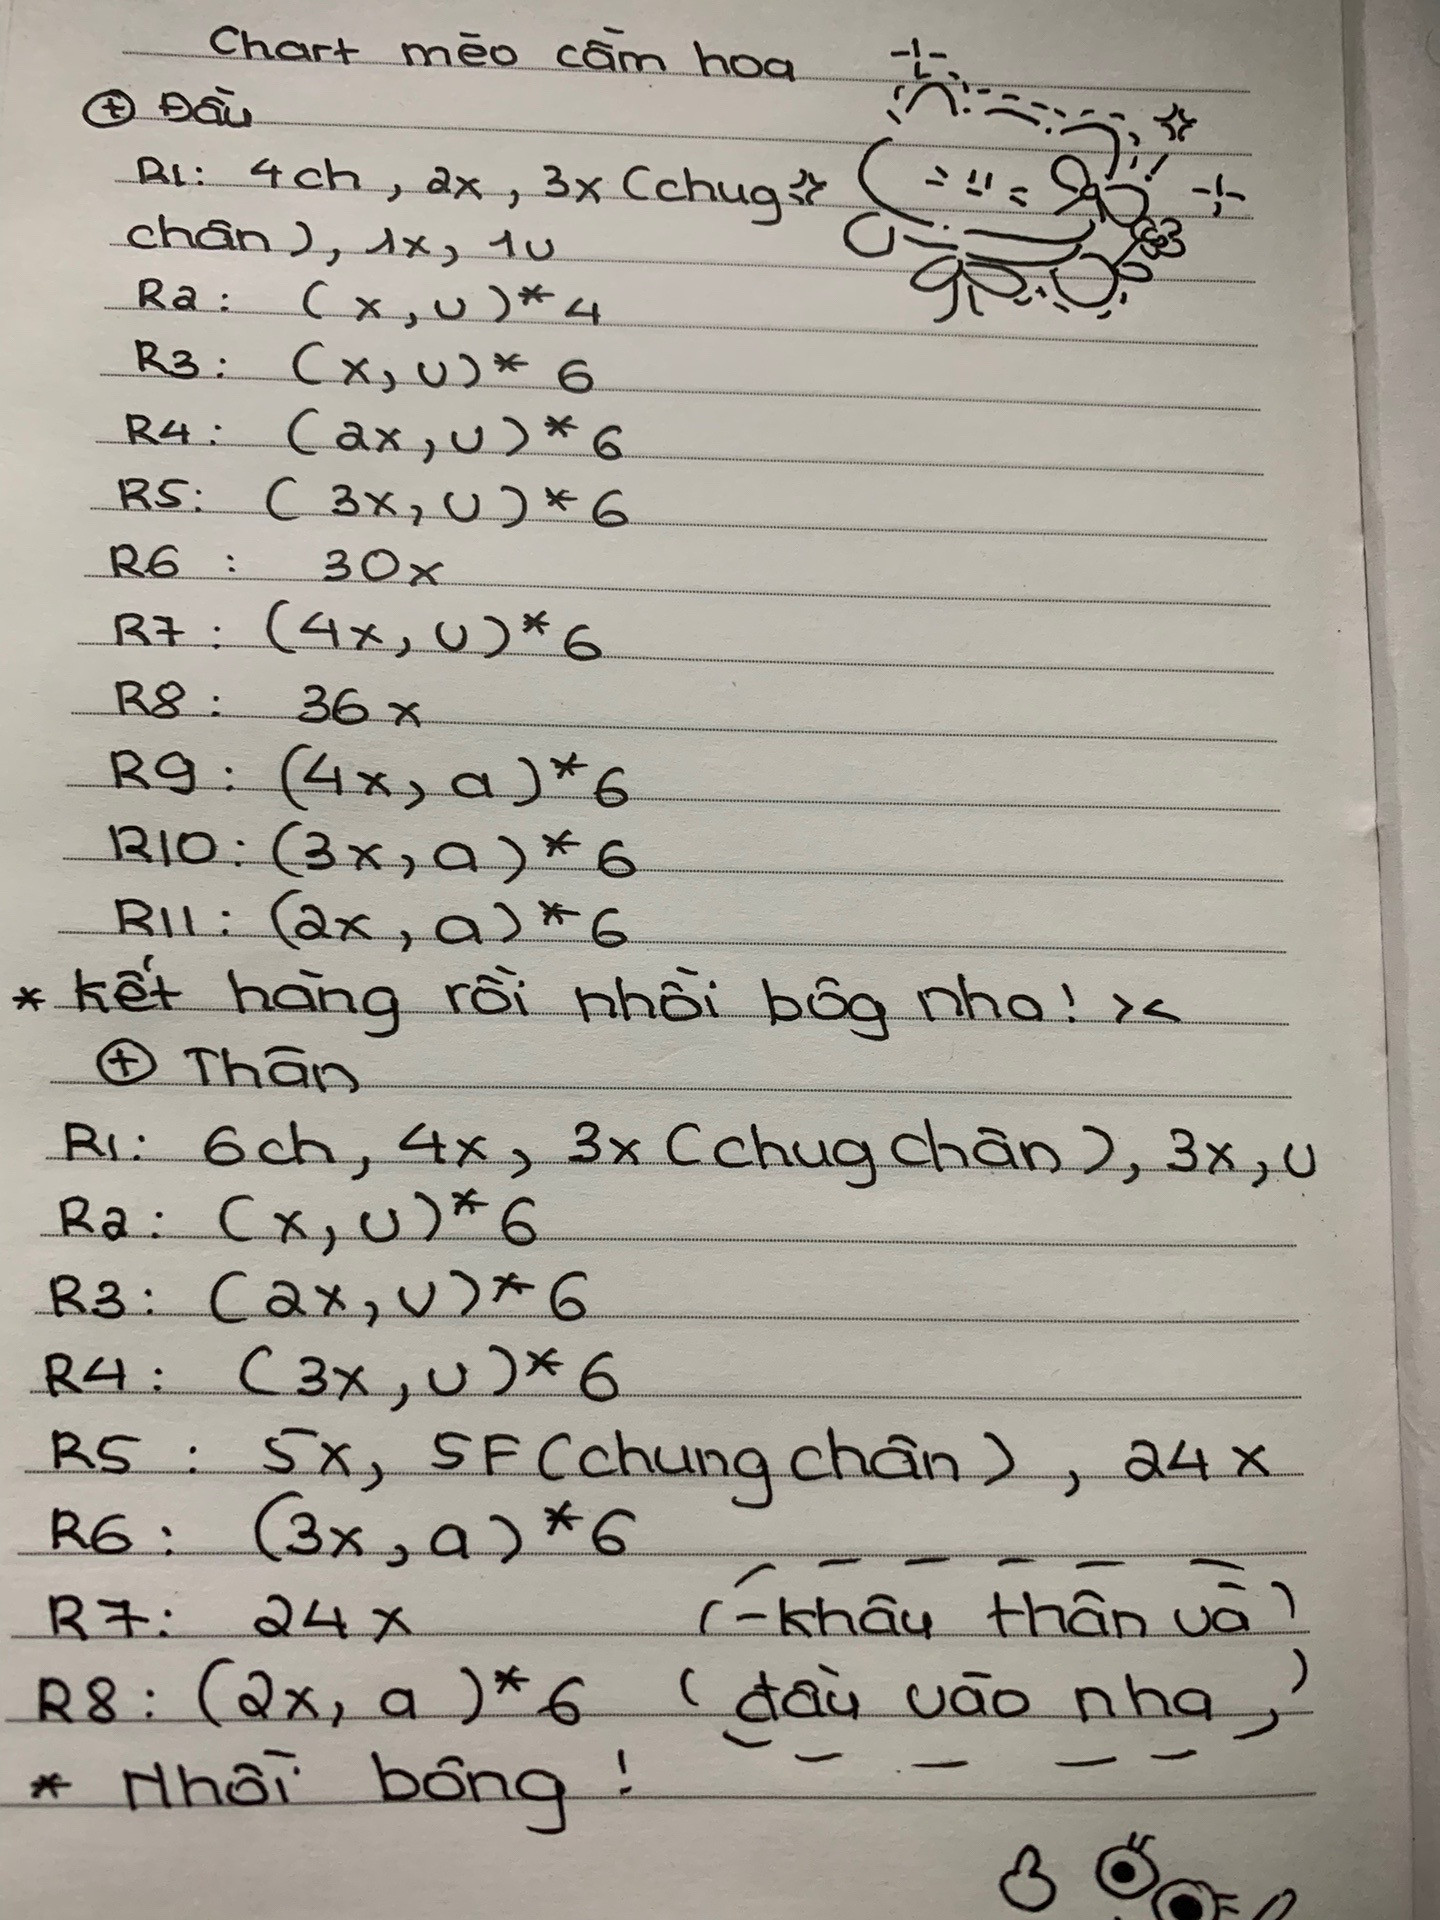 Chart mèo cầm hoa
+ Đầu
R1: 4ch, 2x, 3x (chug
chân), 1x, 1u
R2: (x, u)*4
R3: (x, u)* 6
R4: (2x, u)*6
R5: (3x, u)*6
R6 : 30x
R7: (4x, u)*6
R8: 36x
R9: (4x, a)*6
R10: (3x, a)*6
R11: (2x, a)*6
* kết hàng rồi nhồi bôg nha! ><
+ Thân
R1: 6ch, 4x, 3x (chug chân), 3x, u
R2: (x, u)*6
R3: (2x, u)*6
R4: (3x, u)*6
R5: 5x, 5F (chung chân), 24x
R6: (3x, a)*6
R7: 24x (-khâu thân và)
R8: (2x, a)*6 (đầu vào nha,)
* Nhồi bông!